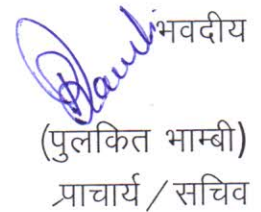 भवदीय
(पुलकित भाम्बी)
प्राचार्य / सचिव